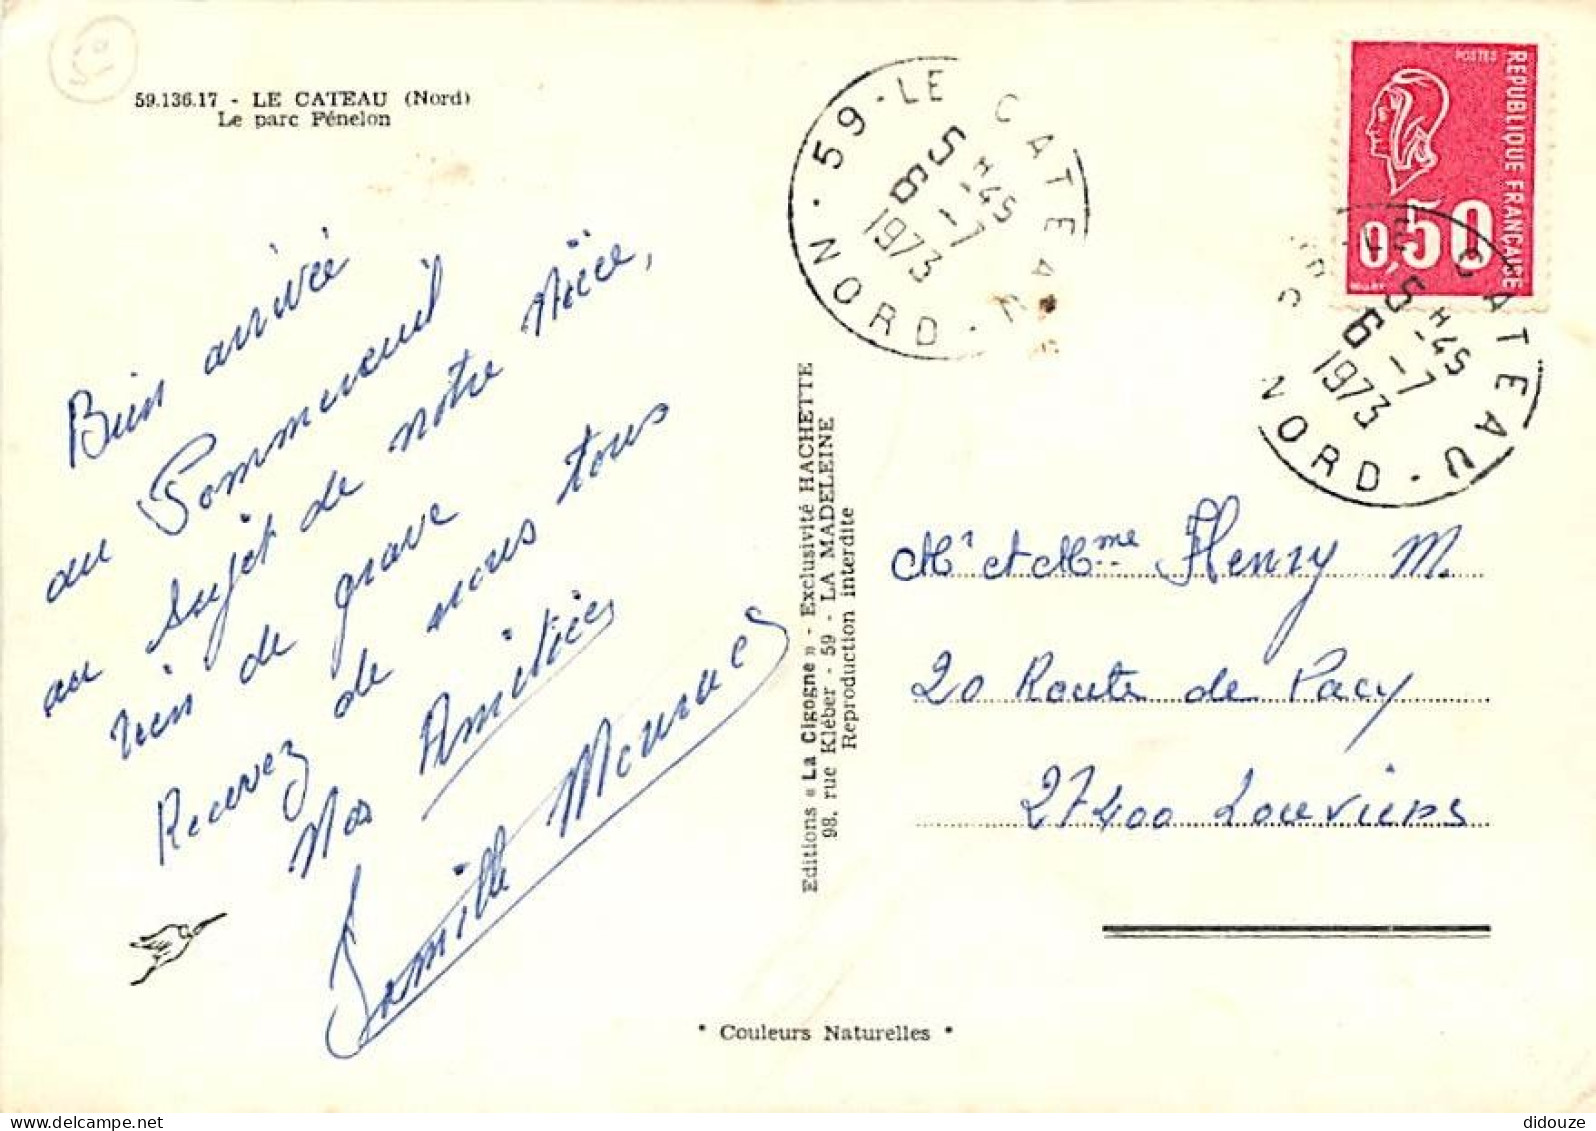 59
59.136.17 - LE CATEAU (Nord)
Le parc Fénelon
Bien arrivée
au Pommereuil
au sujet de notre Nièce,
rien de grave
Recevez de nous tous
Nos Amitiés
Famille
Editions « La Cigogne » - Exclusivité HACHETTE
98, rue Kléber - 59 - LA MADELEINE
Reproduction interdite
* Couleurs Naturelles *
59 - LE CATEAU
NORD
5 H 45
6 - 7
1973
POSTES
REPUBLIQUE FRANÇAISE
0,50
CATEAU
NORD
5 H 45
6 - 7
1973
Mr et Mme Henry M.
20 Route de Pacy
27400 Louviers
delcampe.net
didouze